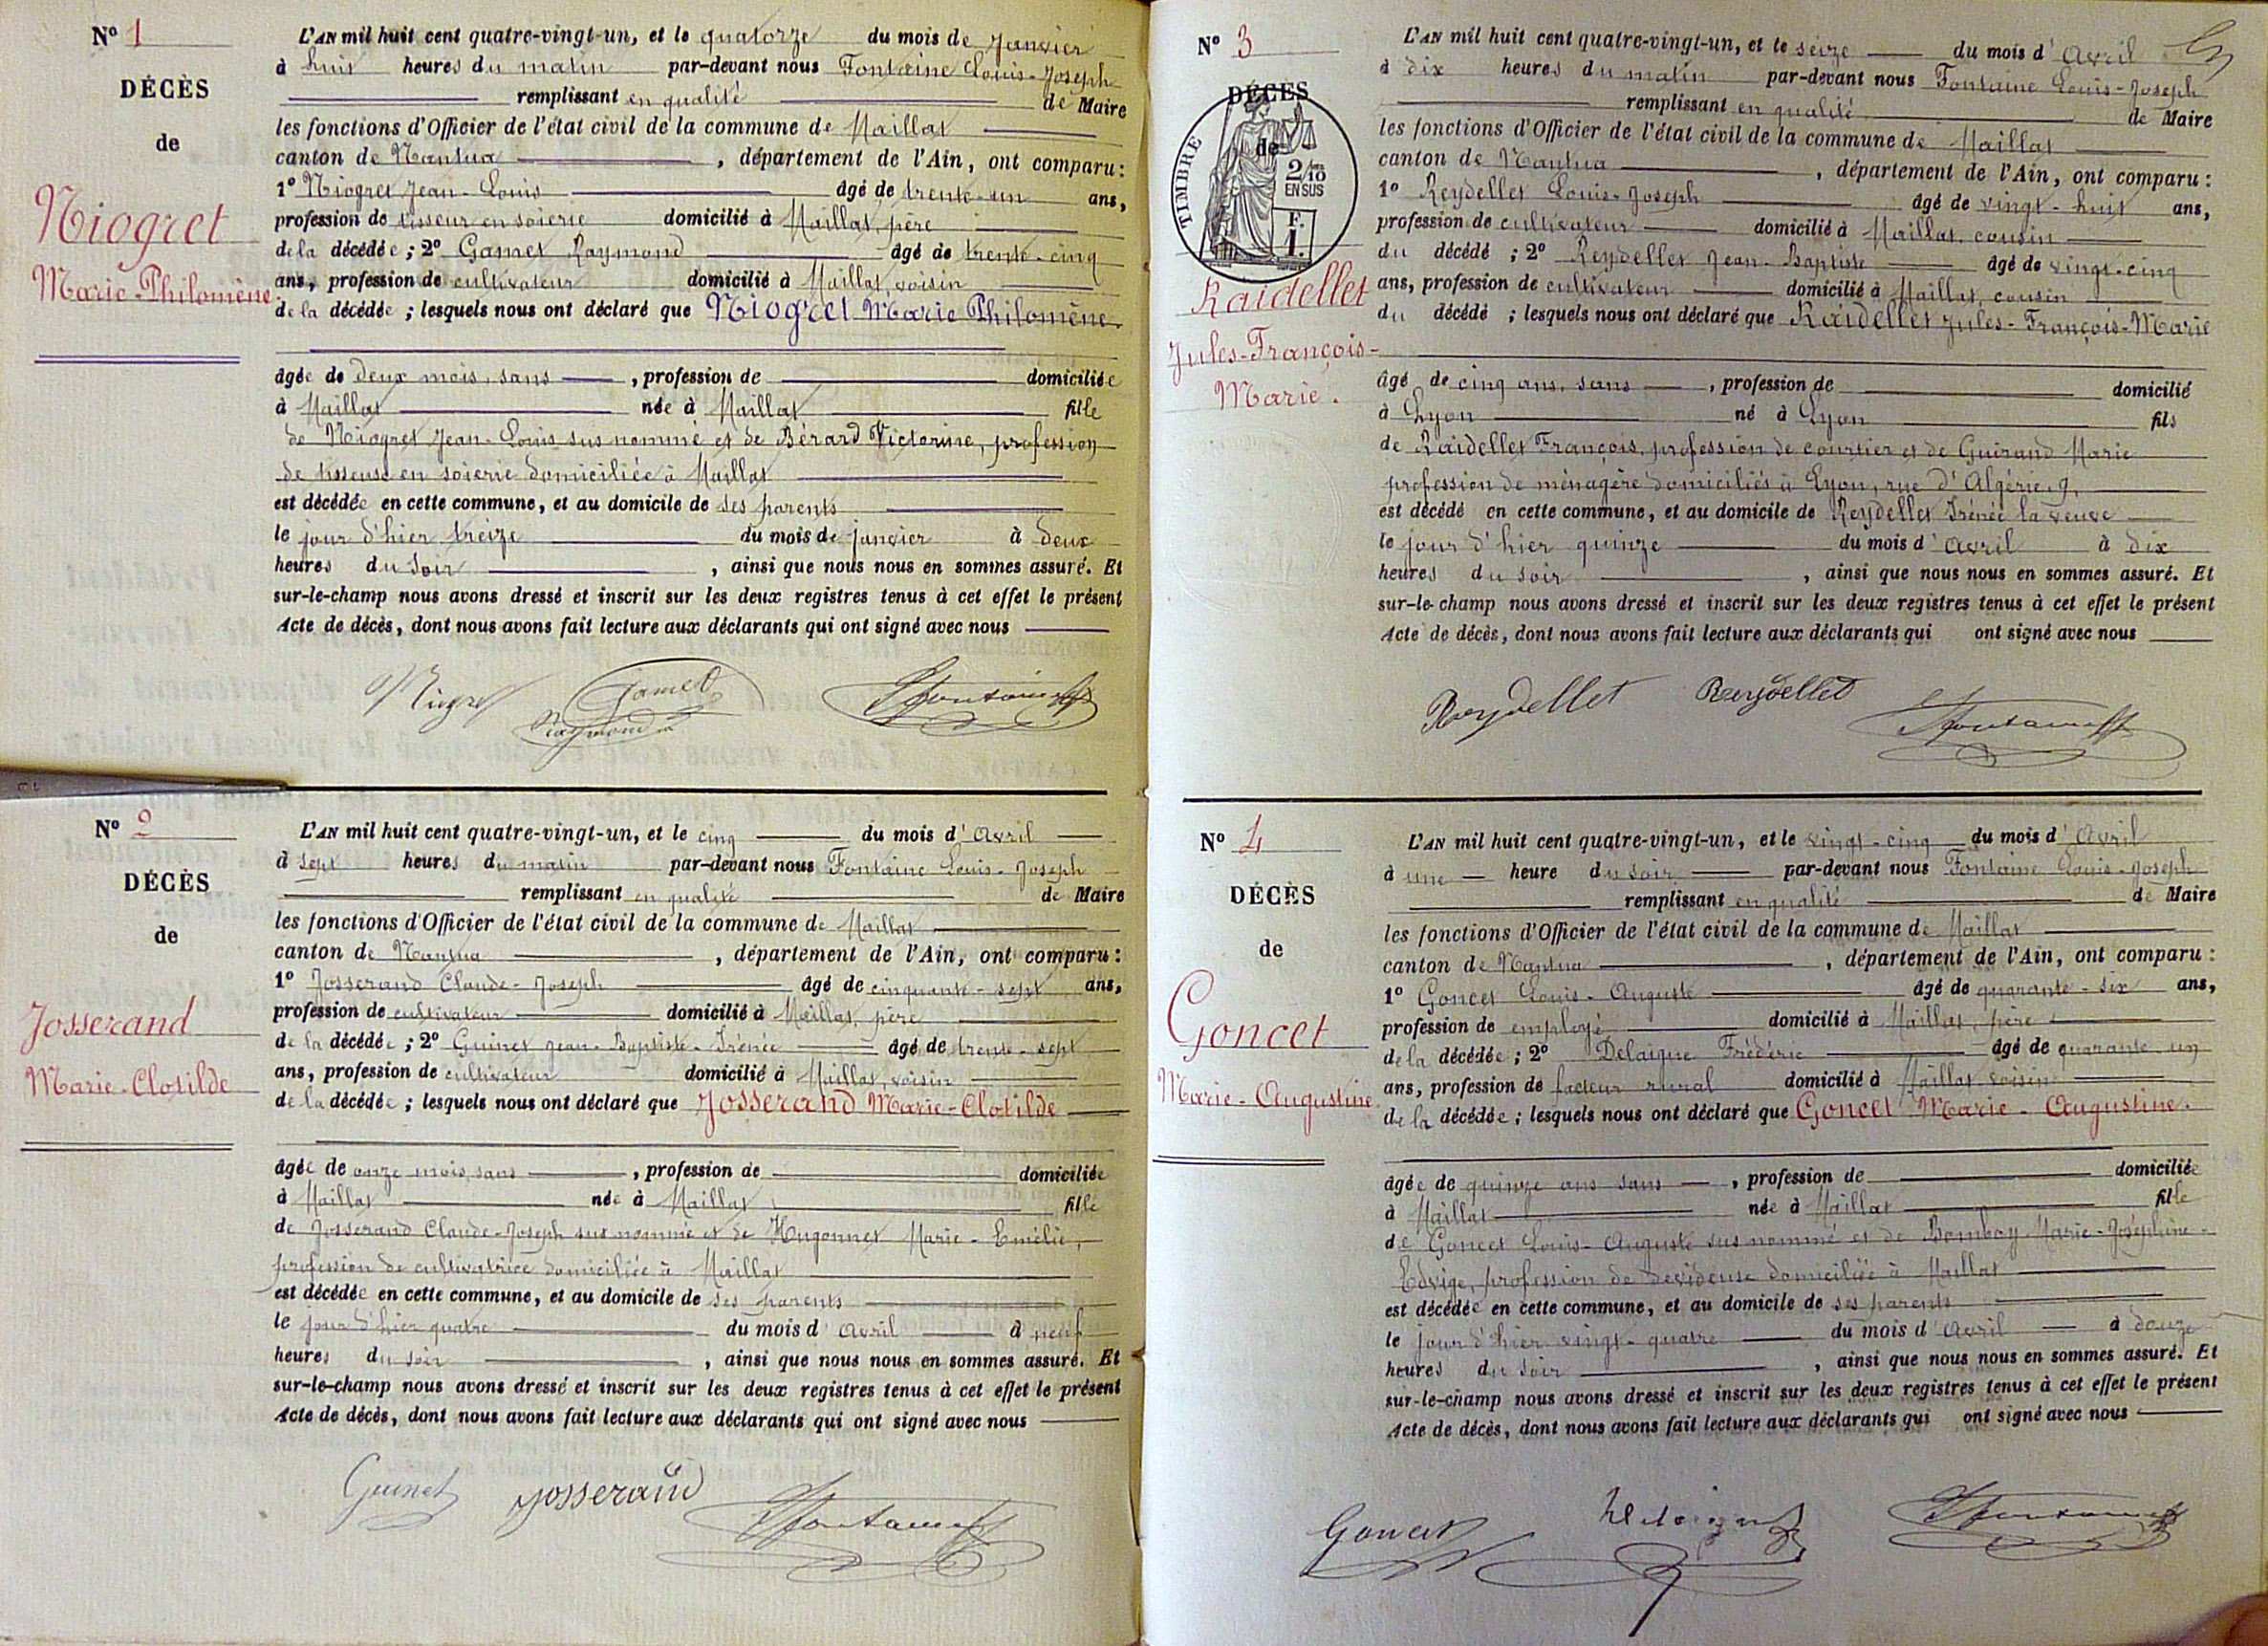 Nº 1
DÉCÈS
de
Niogret
Marie-Philomène.
L'AN mil huit cent quatre-vingt-un, et le quatorze du mois de Janvier
à huit heures du matin par-devant nous Fontaine Louis-Joseph
remplissant en qualité de Maire
les fonctions d'Officier de l'état civil de la commune de Maillat
canton de Nantua, département de l'Ain, ont comparu:
1º Niogret Jean-Louis âgé de trente-un ans,
profession de tisseur en soierie domicilié à Maillat, père
de la décédée; 2º Gamet Raymond âgé de trente-cinq
ans, profession de cultivateur domicilié à Maillat, voisin
de la décédée; lesquels nous ont déclaré que Niogret Marie Philomène.
âgée de deux mois, sans, profession de domiciliée
à Maillat née à Maillat fille
de Niogret Jean-Louis sus nommé et de Bérard Victorine, profession
de tisseuse en soierie domiciliée à Maillat
est décédée en cette commune, et au domicile de ses parents
le jour d'hier treize du mois de janvier à deux
heures du soir, ainsi que nous nous en sommes assuré. Et
sur-le-champ nous avons dressé et inscrit sur les deux registres tenus à cet effet le présent
Acte de décès, dont nous avons fait lecture aux déclarants qui ont signé avec nous
Niogret Gamet Raymond Fontaine
Nº 2
DÉCÈS
de
Josserand
Marie-Clotilde
L'AN mil huit cent quatre-vingt-un, et le cinq du mois d'Avril
à sept heures du matin par-devant nous Fontaine Louis-Joseph
remplissant en qualité de Maire
les fonctions d'Officier de l'état civil de la commune de Maillat
canton de Nantua, département de l'Ain, ont comparu:
1º Josserand Claude-Joseph âgé de cinquante-sept ans,
profession de cultivateur domicilié à Maillat, père
de la décédée; 2º Guinet Jean-Baptiste-Irénée âgé de trente-sept
ans, profession de cultivateur domicilié à Maillat, voisin
de la décédée; lesquels nous ont déclaré que Josserand Marie-Clotilde
âgée de onze mois, sans, profession de domiciliée
à Maillat née à Maillat fille
de Josserand Claude-Joseph sus nommé et de Hugonnet Marie-Emélie,
profession de cultivatrice domiciliée à Maillat
est décédée en cette commune, et au domicile de ses parents
le jour d'hier quatre du mois d'Avril à neuf
heures du soir, ainsi que nous nous en sommes assuré. Et
sur-le-champ nous avons dressé et inscrit sur les deux registres tenus à cet effet le présent
Acte de décès, dont nous avons fait lecture aux déclarants qui ont signé avec nous
Guinet Josserand Fontaine
Nº 3
DÉCÈS
de
TIMBRE
2/10
EN SUS
F.
1.
Raidellet
Jules-François-
Marie.
L'AN mil huit cent quatre-vingt-un, et le seize du mois d'Avril
à dix heures du matin par-devant nous Fontaine Louis-Joseph
remplissant en qualité de Maire
les fonctions d'Officier de l'état civil de la commune de Maillat
canton de Nantua, département de l'Ain, ont comparu:
1º Reydellet Louis-Joseph âgé de vingt-huit ans,
profession de cultivateur domicilié à Maillat, cousin
du décédé; 2º Reydellet Jean-Baptiste âgé de vingt-cinq
ans, profession de cultivateur domicilié à Maillat, cousin
du décédé; lesquels nous ont déclaré que Raidellet Jules-François-Marie
âgé de cinq ans, sans, profession de domicilié
à Lyon né à Lyon fils
de Raidellet François, profession de courtier et de Guirand Marie
profession de ménagère domiciliés à Lyon, rue d'Algérie, 9,
est décédé en cette commune, et au domicile de Reydellet Irénée la veuve
le jour d'hier quinze du mois d'Avril à dix
heures du soir, ainsi que nous nous en sommes assuré. Et
sur-le-champ nous avons dressé et inscrit sur les deux registres tenus à cet effet le présent
Acte de décès, dont nous avons fait lecture aux déclarants qui ont signé avec nous
Reydellet Reydellet Fontaine
Nº 4
DÉCÈS
de
Goncet
Marie-Augustine
L'AN mil huit cent quatre-vingt-un, et le vingt-cinq du mois d'Avril
à une heure du soir par-devant nous Fontaine Louis-Joseph
remplissant en qualité de Maire
les fonctions d'Officier de l'état civil de la commune de Maillat
canton de Nantua, département de l'Ain, ont comparu:
1º Goncet Louis-Auguste âgé de quarante-six ans,
profession de employé domicilié à Maillat, père
de la décédée; 2º Delaigue Frédéric âgé de quarante un
ans, profession de facteur rural domicilié à Maillat voisin
de la décédée; lesquels nous ont déclaré que Goncet Marie-Augustine.
âgée de quinze ans sans, profession de domiciliée
à Maillat née à Maillat fille
de Goncet Louis-Auguste sus nommé et de Bomboy Marie-Joséphine-
Edvige, profession de dévideuse domiciliée à Maillat
est décédée en cette commune, et au domicile de ses parents
le jour d'hier vingt-quatre du mois d'Avril à douze
heures du soir, ainsi que nous nous en sommes assuré. Et
sur-le-champ nous avons dressé et inscrit sur les deux registres tenus à cet effet le présent
Acte de décès, dont nous avons fait lecture aux déclarants qui ont signé avec nous
Goncet Delaigue Fontaine